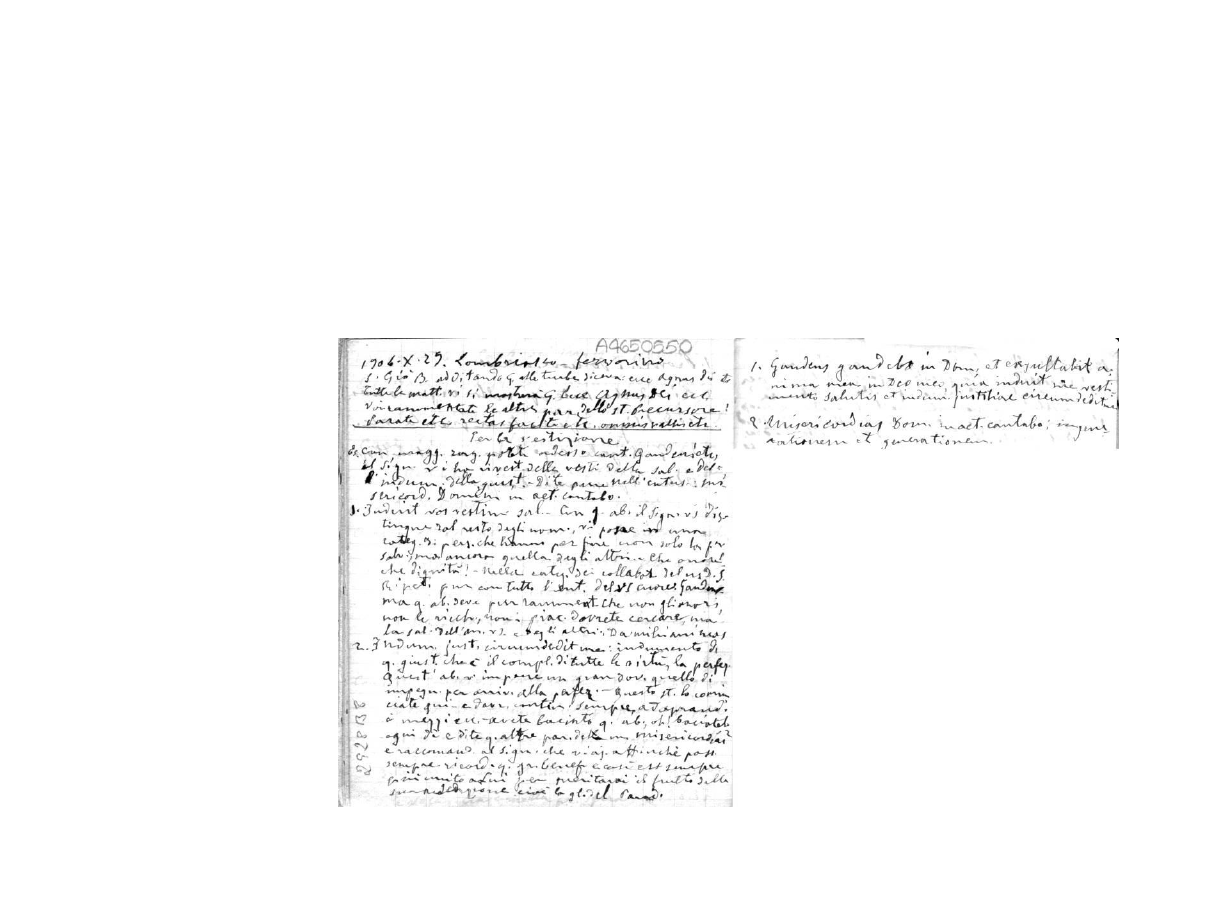 A4650550
1906.X.29. Lombriasco - fervorino
S. Gio B. additando G. alle turbe diceva: ecce Agnus Dei et
tutte le matt. vi si mostra G. Ecce Agnus Dei ecc
rammentate le altre par. dello st. Precursore!
Parate etc rectas facite etc. omnis vallis etc.
Per la vestizione
adesso cant. Gaudens etc,
il Sign. vi ha rivest. della vesti della sal. e del-
l'indum. della giust. - Dite pure nell'entus.: mi-
sericord. Domini in aet. cantabo.
1. Induit vos vestim. sal. - Con q. ab. il Sign. vi dis-
tingue dal resto degli uom., vi pone in una
categ. di pers. che hanno per fine non solo la pr
salv. ma ancora quella degli altri. - Che onore!
che dignità! - nella categ. dei collabor. del n. D. S.
Ripet. pur con tutto l'ent. del vs cuore: Gaudens
ma q. ab. deve pur ramment. che non gli onori,
non le ricch., non i piac. dovrete cercare, ma
la sal. dell'an. vs. e degli altri. Da mihi animas
2. Indum. just. circumdedit me: indumento di
q. giust. che è il compl. di tutte le virtù, la perfez.
Quest'ab. vi impone un gran dov. quello di
impegn. per arriv. alla perfez. - Questo st. lo comin
ciate qui - e dovr. contin. sempre, adoprand.
i mezzi ecc. - avete baciato q. ab., oh! baciatelo
ogni dì e dite q. altre par. misericordias
e raccomand. al Sign. che vi aj. affinchè poss.
sempre ricord. q. gr. benef. e così est sempre
più uniti a lui per meritarvi il frutto della
sua redenzione cioè la gl. del Parad.
1. Gaudens gaudebo in Dom, et exsultabit a-
nima mea in Deo meo, quia induit me vesti
mento salutis et indum. justitiae circumdedit me
2. Misericordias Dom. in aet. cantabo; in gene
rationem et generationem.